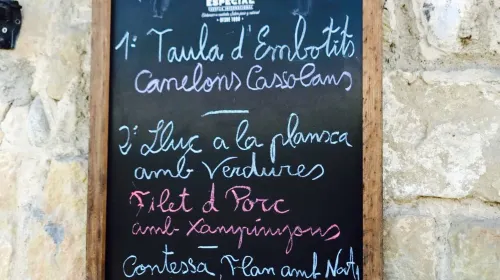 ESPECIAL
1ª Taula d'Embotits
Canelons Cassolans
2ª Lluç a la planxa
amb Verdures
Filet d Porc
amb Xampinyons
Contessa, Flan amb Nata